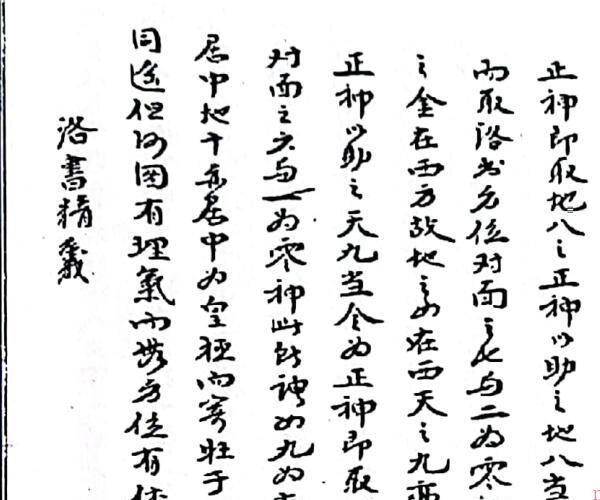 正神即取地八之正神以助之地八当
而取洛书方位对面之七与二为零
之金在西方故地之四在西天之九亦
正神以助之天九当令为正神即取
对面之六与一为零神此所谓四九为
居中地十亦居中为皇极而寄旺于
同途但河图有理气而无方位有
洛書精義